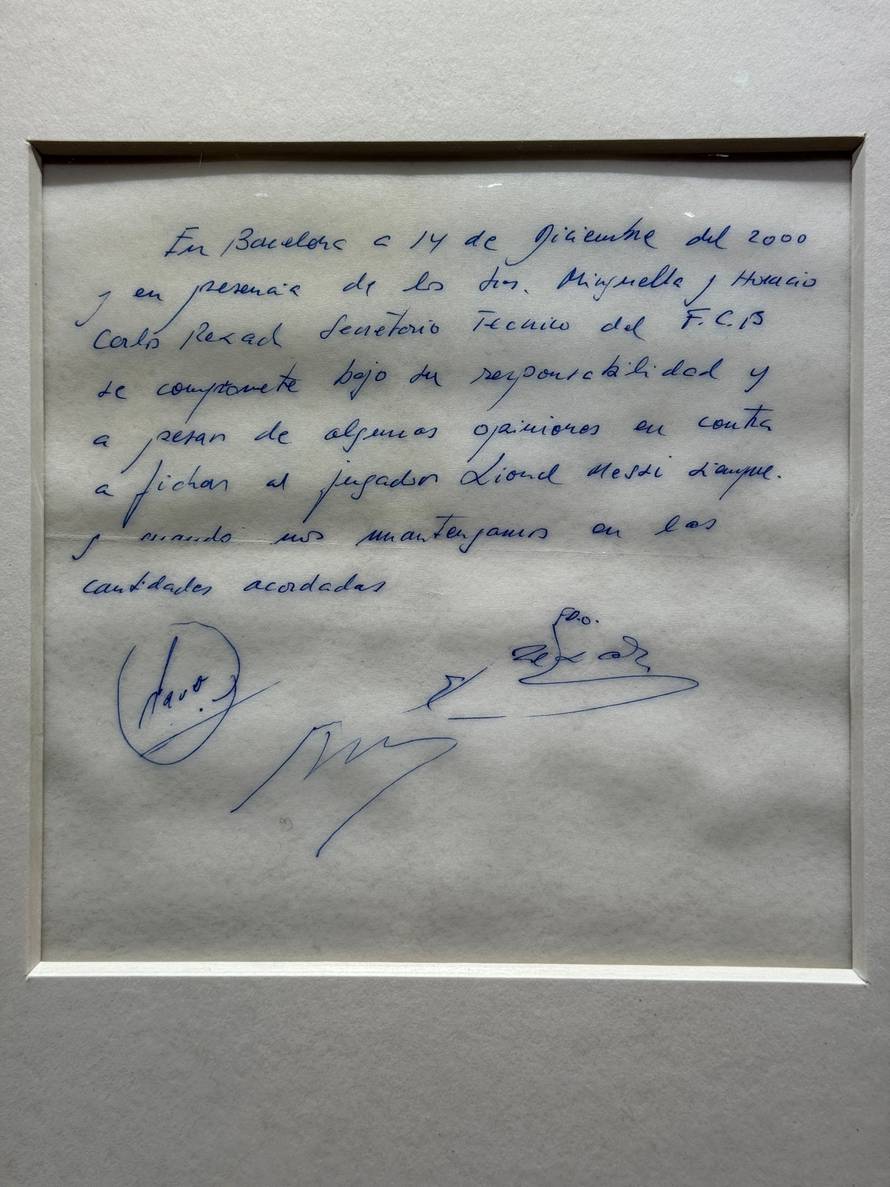 En Barcelona a 14 de Diciembre del 2000
y en presencia de los Srs. Minguella y Horacio
Carlos Rexach Secretario Tecnico del F.C.B
se compromete bajo su responsabilidad y
a pesar de algunas opiniones en contra
a fichar al jugador Lionel Messi siempre.
y cuando nos mantengamos en las
cantidades acordadas
FDO.
Rexach